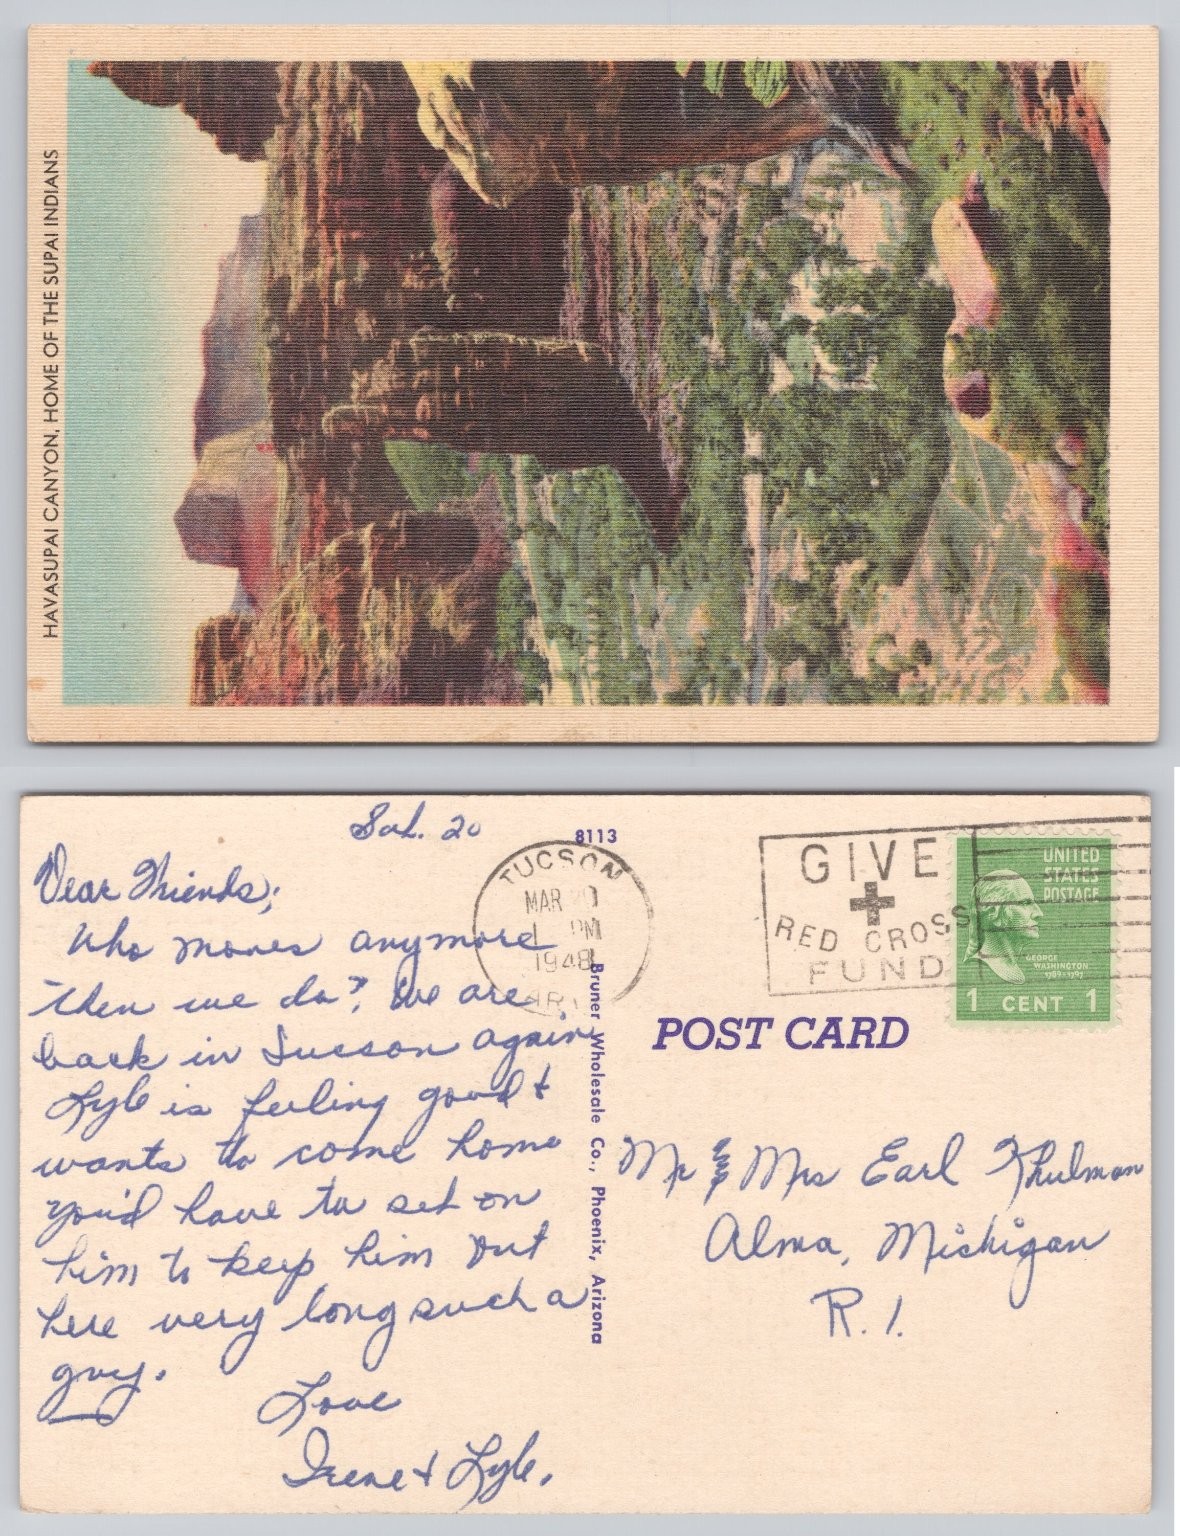 HAVASUPAI CANYON, HOME OF THE SUPAI INDIANS
Sat. 20
Dear Friends;
Who moves anymore
then we do? We are
back in Tucson again
Lyle is feeling good &
wants to come home
you'd have to set on
him to keep him out
here very long such a
guy.
Love
Irene & Lyle.
8113
TUCSON
MAR 20
1 PM
1948
ARIZ
Bruner Wholesale Co., Phoenix, Arizona
GIVE
RED CROSS
FUND
UNITED
STATES
POSTAGE
GEORGE
WASHINGTON
1789-1797
1 CENT 1
POST CARD
Mr & Mrs Earl Khulman
Alma, Michigan
R. 1.